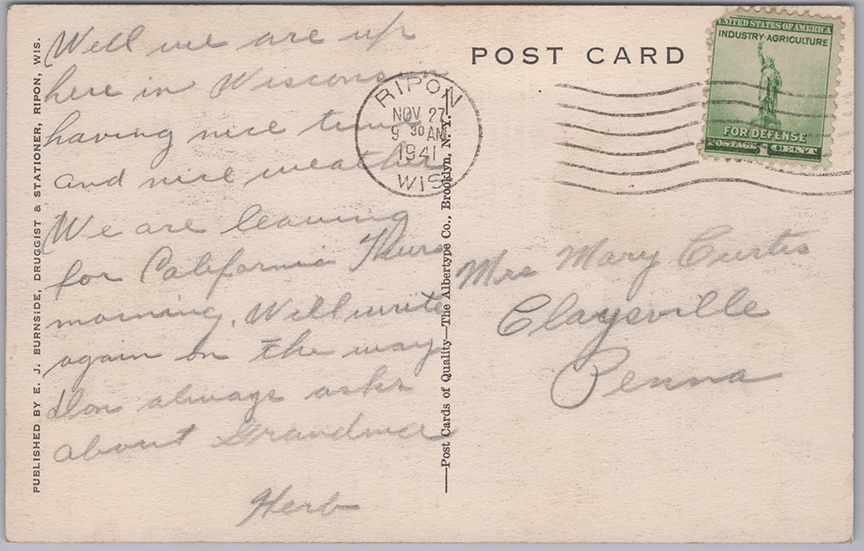 PUBLISHED BY E. J. BURNSIDE, DRUGGIST & STATIONER, RIPON, WIS.
Well we are up
here in Wisconsin
having nice time
and nice weather
We are leaving
for California Thurs
morning. Will write
again on the way
Don always asks
about Grandma
Herb
Post Cards of Quality—The Albertype Co., Brooklyn, N. Y.
POST CARD
RIPON
NOV 27
9 30 AM
1941
WIS
UNITED STATES OF AMERICA
INDUSTRY·AGRICULTURE
FOR DEFENSE
POSTAGE 1 CENT
Mrs Mary Curtis
Claysville
Penna